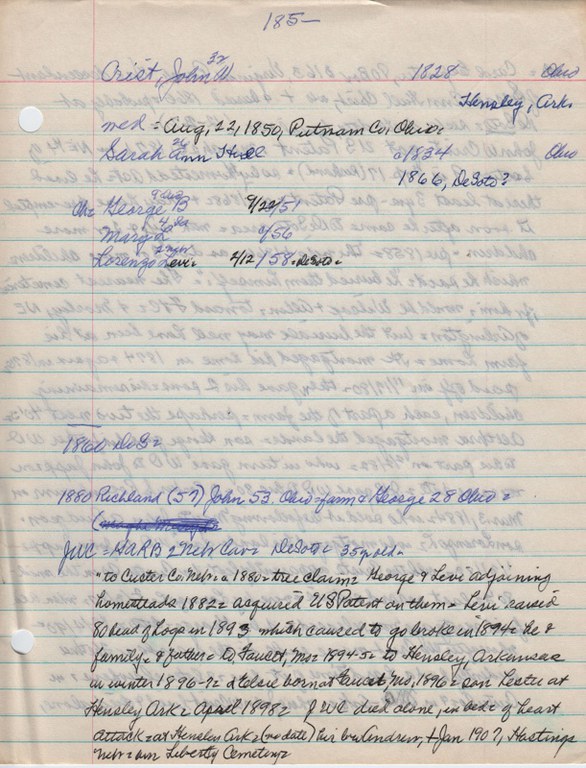 185-
32
Crist, John W 1828 Ohio
Hensley, Ark.
med = Aug, 22, 1850, Putnam Co, Ohio.
26
Sarah Ann Hull c1834 Ohio
1866, DeSoto?
9 Oio
Ch= George B 9/22/51
4 Ia
Mary L c/56
2 nebr
Lorenzo Levi = 4/12/58 = DeSoto =
1860 DeS =
1880 Richland (57) John 53. Ohio = farm & George 28 Ohio =
JWC = GARB 2 Nebr Cav = DeSoto = 35 y old =
"to Custer Co. Nebr = c 1880 = tree claim = George & Levi adjoining
homesteads 1882 = acquired US Patent on them = Levi raised
80 head of hogs in 1893 which caused to go broke in 1894 = he &
family & father = to, Faucett, Mo = 1894-5 = to Hensley, Arkansas
in winter 1896-7 = d Elsie born at Faucett Mo, 1896 = son Lester at
Hensley Ark = April 1898 = JWC died alone, in bed of heart
attack = at Hensley Ark = (no date) his bro Andrew, + Jan 1907, Hastings
Nebr = Liberty Cemetery =